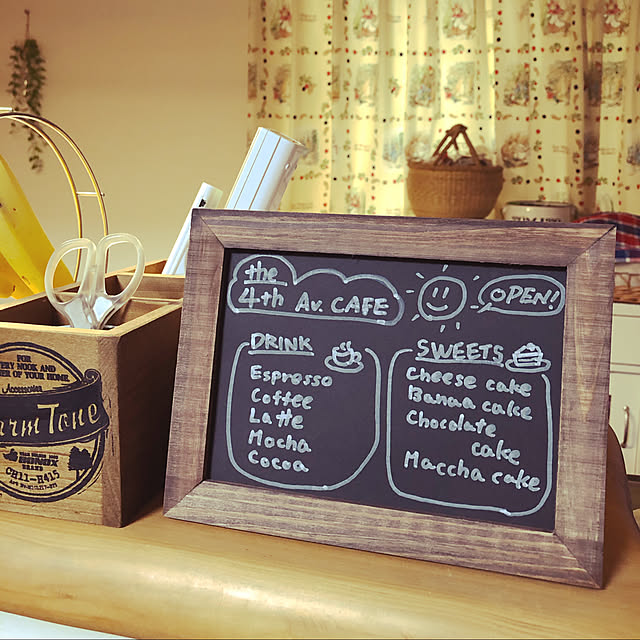 the
4th Av. CAFE
OPEN!
DRINK
Espresso
Coffee
Latte
Mocha
Cocoa
SWEETS
Cheese cake
Banaa cake
Chocolate
cake
Maccha cake
FOR
NOOK AND
OF YOUR HOME
Accessories
Tone
CH11-H415